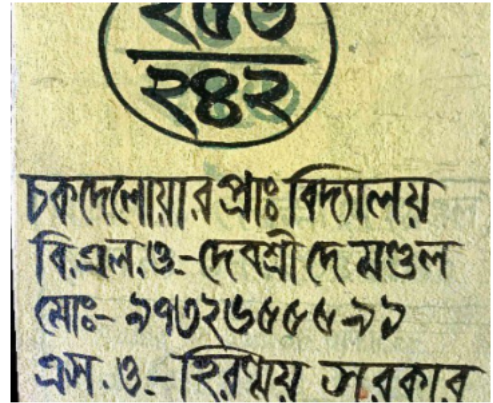 ২৫৩
২৪২
চকদেলোয়ার প্রাঃ বিদ্যালয়
বি.এল.ও.-দেবশ্রী দে মণ্ডল
মোঃ- ৯৭৩২৬৫৫৫৯১
এস.ও.-হিরণ্ময় সরকার